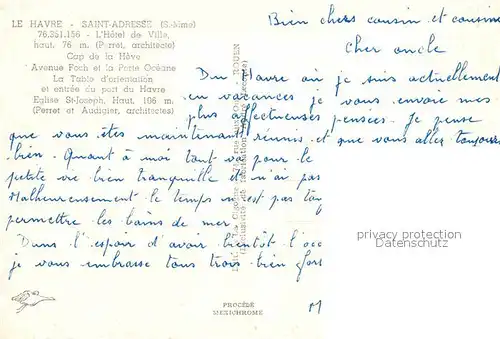 LE HAVRE - SAINTE-ADRESSE (S.-Mme)
76.351.156 - L'Hôtel de Ville,
haut. 76 m. (Perret, architecte)
Cap de la Hève
Avenue Foch et la Porte Océane
La Table d'orientation
et entrée du port du Havre
Eglise St-Joseph, Haut. 106 m.
(Perret et Audigier, architectes)
Bien chers cousin et cousine
Cher oncle
Du Havre où je suis actuellement
en vacances je vous envoie mes
plus affectueuses pensées. Je pense
que vous êtes maintenant réunis et que vous allez toujours
bien. Quant à moi tout va pour le
petite vie bien tranquille et n'ai pas
Malheureusement le temps n'est pas
permettre les bains de mer
Dans l'espoir d'avoir bientôt l'occ
je vous embrasse tous trois bien fort
M
ROUEN
PROCÉDÉ
MEXICHROME
privacy protection
Datenschutz